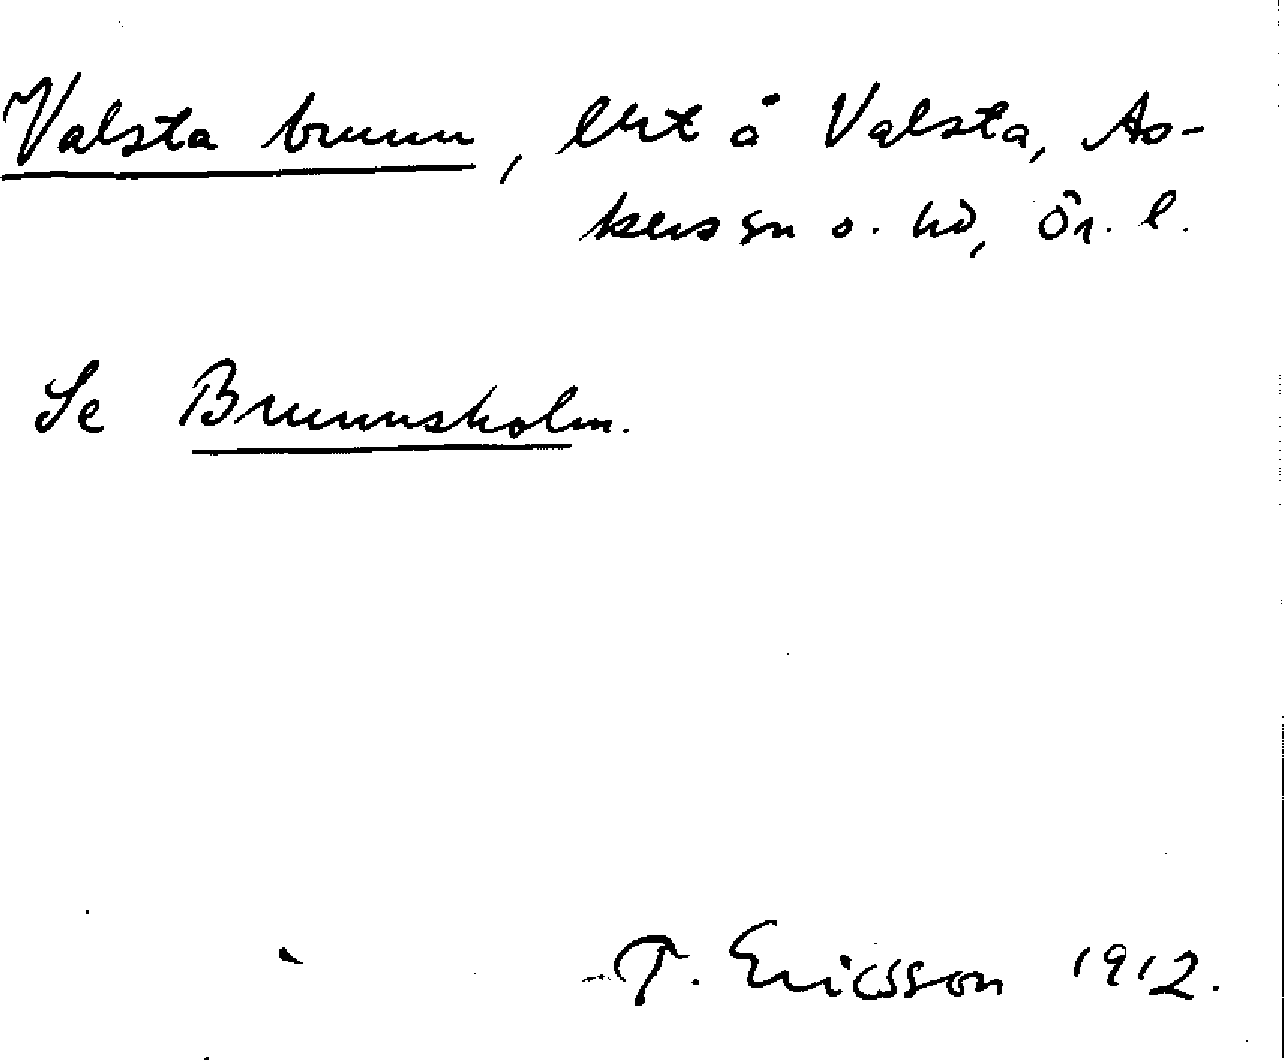 Valsta brunn, lht å Valsta, As-
kers sn o. hd, Ör. l.
Se Brunnsholm.
T. Ericsson 1912.